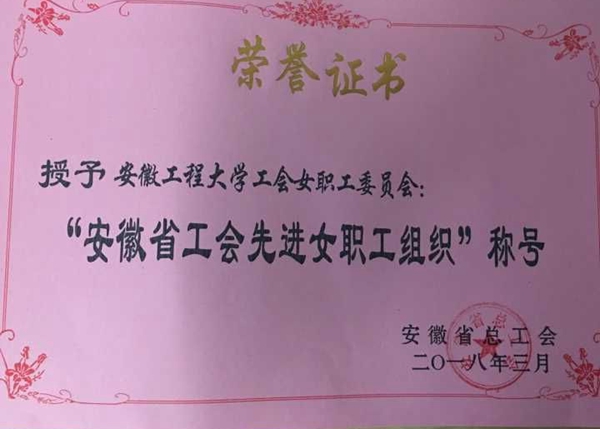 荣誉证书
授予 安徽工程大学工会女职工委员会：
“安徽省工会先进女职工组织”称号
安徽省总工会
二〇一八年三月